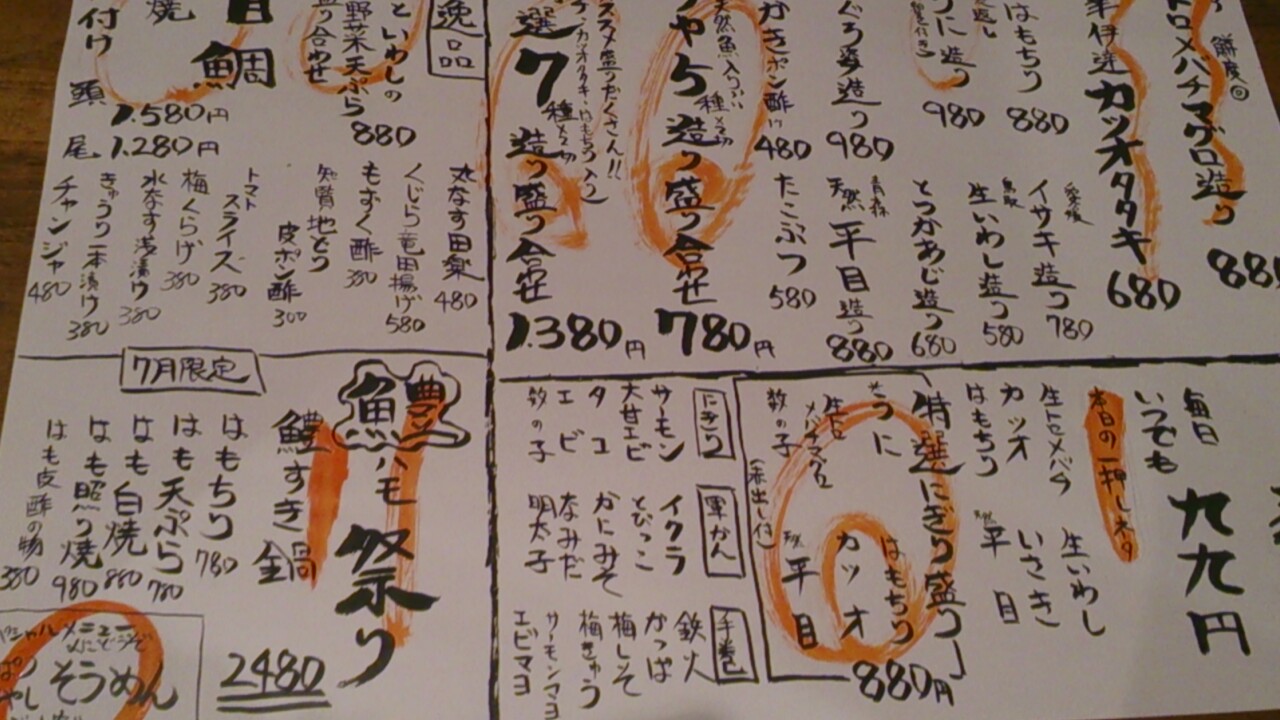 トロメバチマグロ造り 880
カツオタタキ 680
はもちり 880
うに造り 980
まぐろ造り 980
かきポン酢 480
愛媛 イサキ造り 780
鳥取 生いわし造り 580
とつかあじ造り 680
青森 天然 平目造り 880
たこぶつ 580
天然魚入り
5種 造り盛り合わせ 780円
選7種 造り盛り合わせ 1.380円
逸品
といわしの
野菜天ぷら
盛り合わせ
880
鯛
頭 1.580円
尾 1.280円
丸なす田楽 480
くじら竜田揚げ 580
もずく酢 380
知覧地どり
皮ポン酢 300
トマト
スライス 380
梅くらげ 380
水なす浅漬け 380
きゅうり一本漬け 380
チャンジャ 480
毎日
いつでも
九九円
本日の一押しネタ
生トロメバチ
カツオ
はもちり
生いわし
いさき
天然 平目
特選にぎり盛り
生うに
生トロメバチマグロ
数の子
はもちり
カツオ
天然 平目
(赤出し付)
880円
にぎり
サーモン
大甘エビ
タコ
エビ
数の子
軍かん
イクラ
とびっこ
かにみそ
なみだ
明太子
手巻
鉄火
かっぱ
梅しそ
梅きゅう
サーモンマヨ
エビマヨ
7月限定
鱧ハモ祭り
鱧すき鍋
2480
はもちり 780
はも天ぷら 780
はも白焼 880
はも照り焼 980
はも皮酢の物 380
そうめん